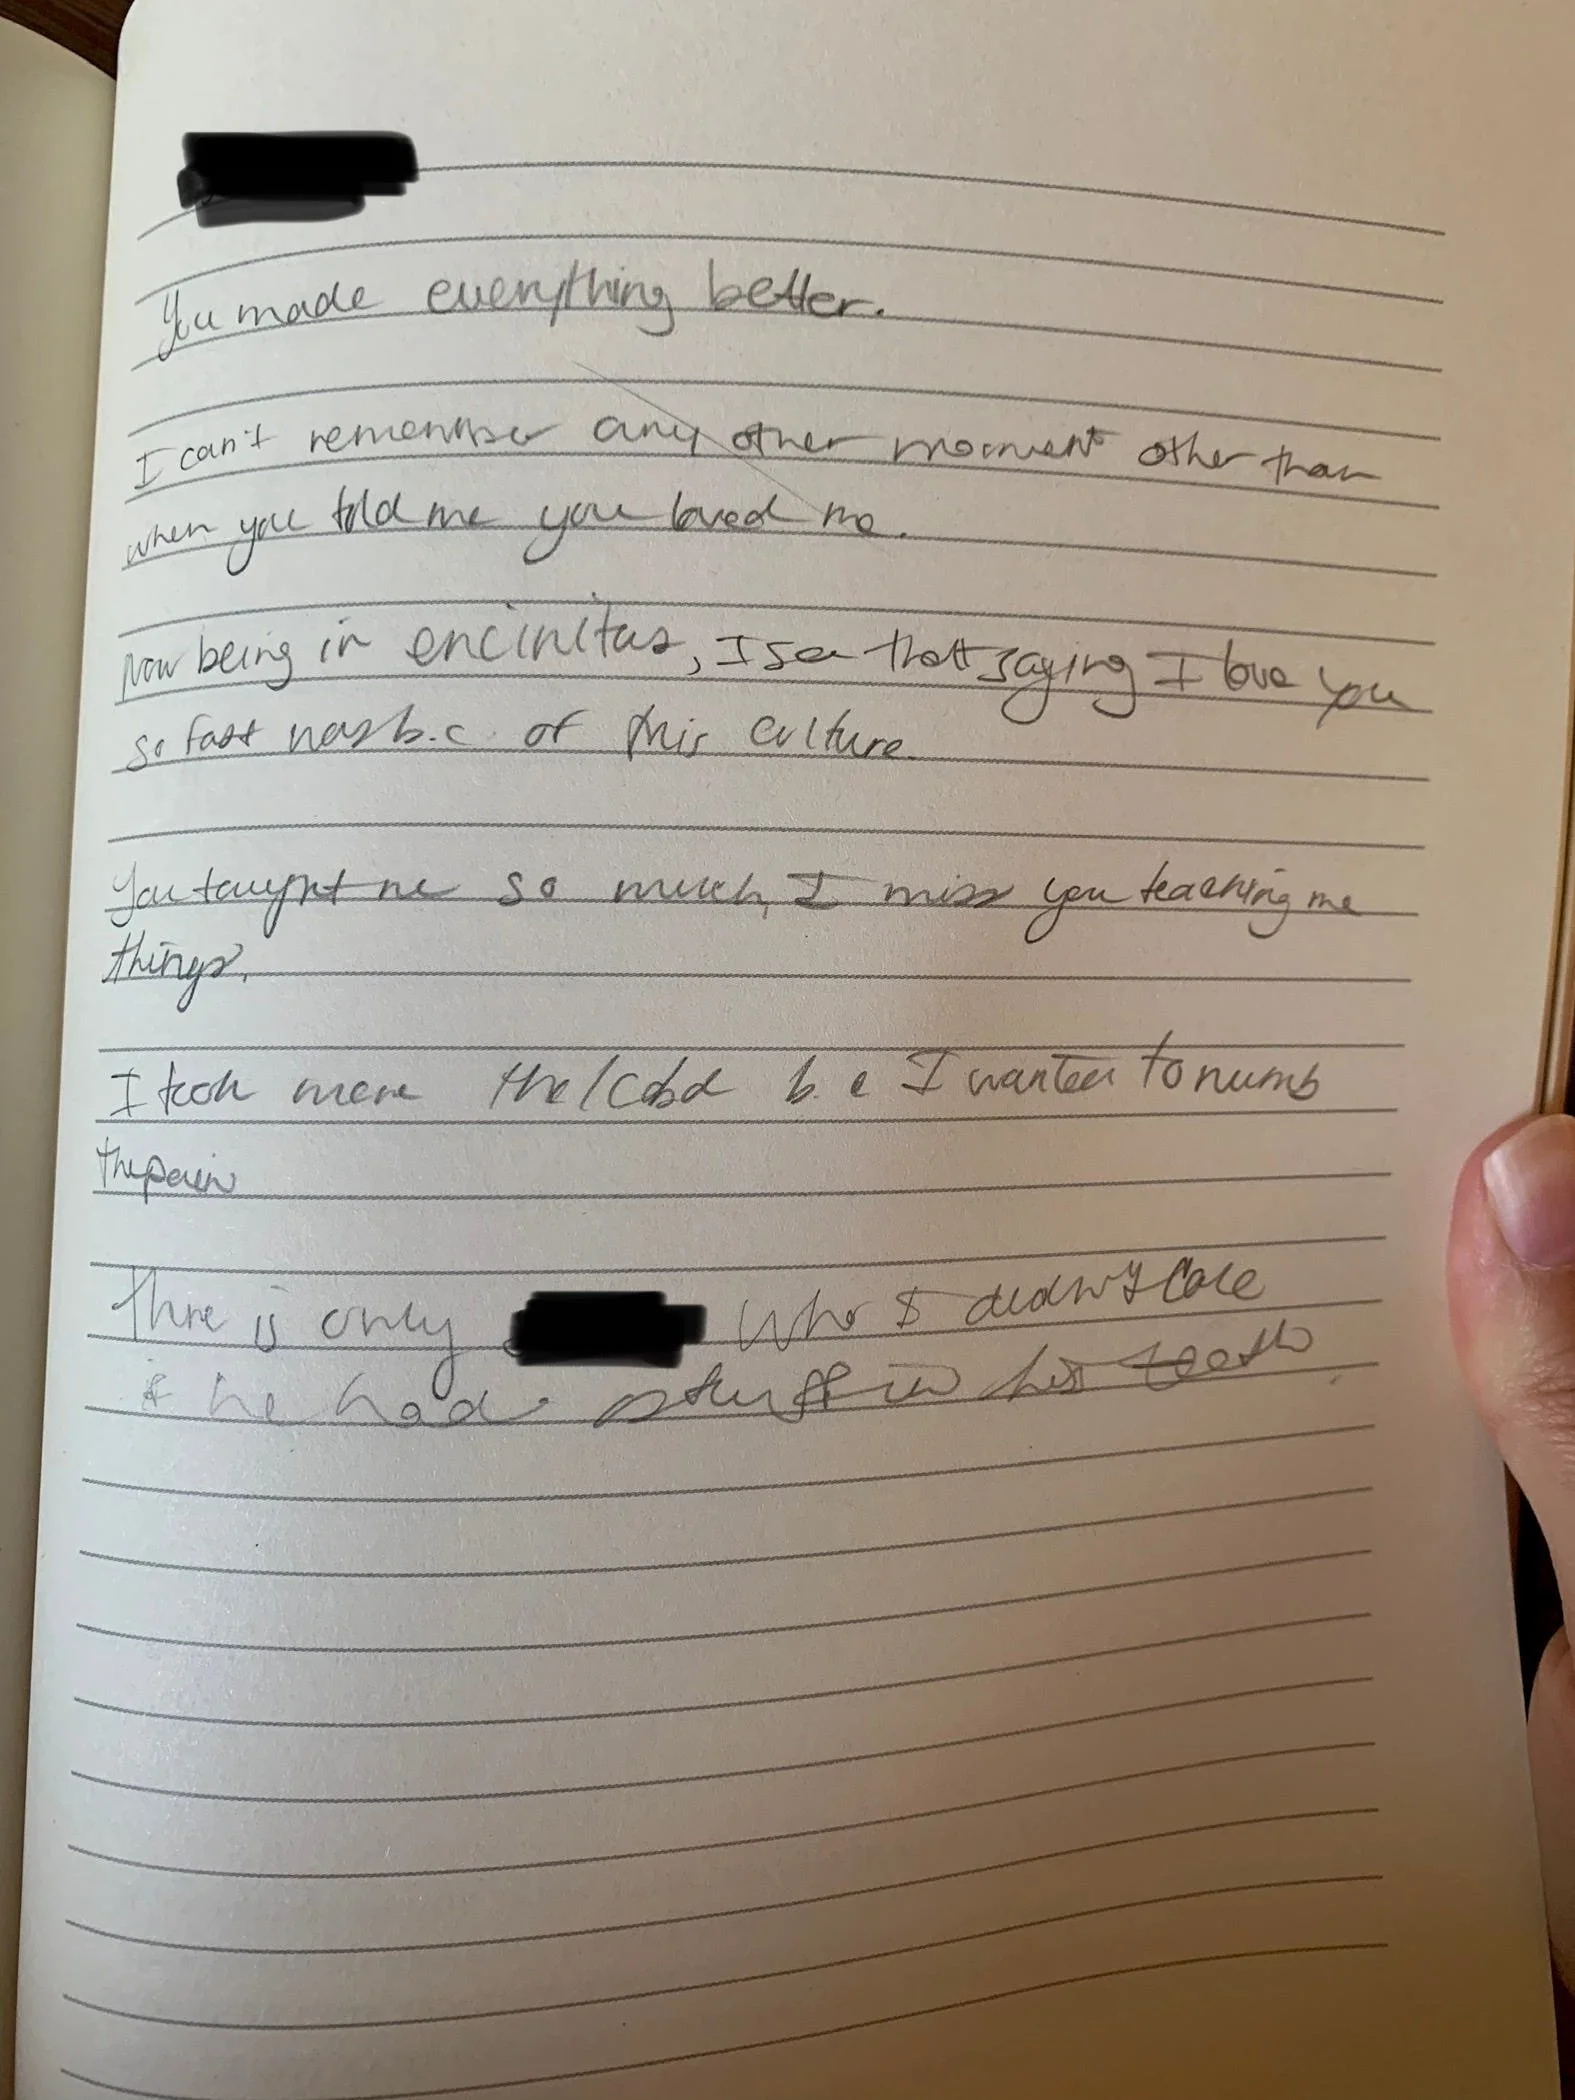 You made everything better.
I can't remember any other moment other than
when you told me you loved me.
Now being in encinitas, I see that saying I love you
so fast was b.c. of this culture.
You taught me so much, I miss you teaching me
things.
I took more thc/cbd b.c I wanted to numb
the pain
There is only who I didn't care
if he had stuff in his teeth